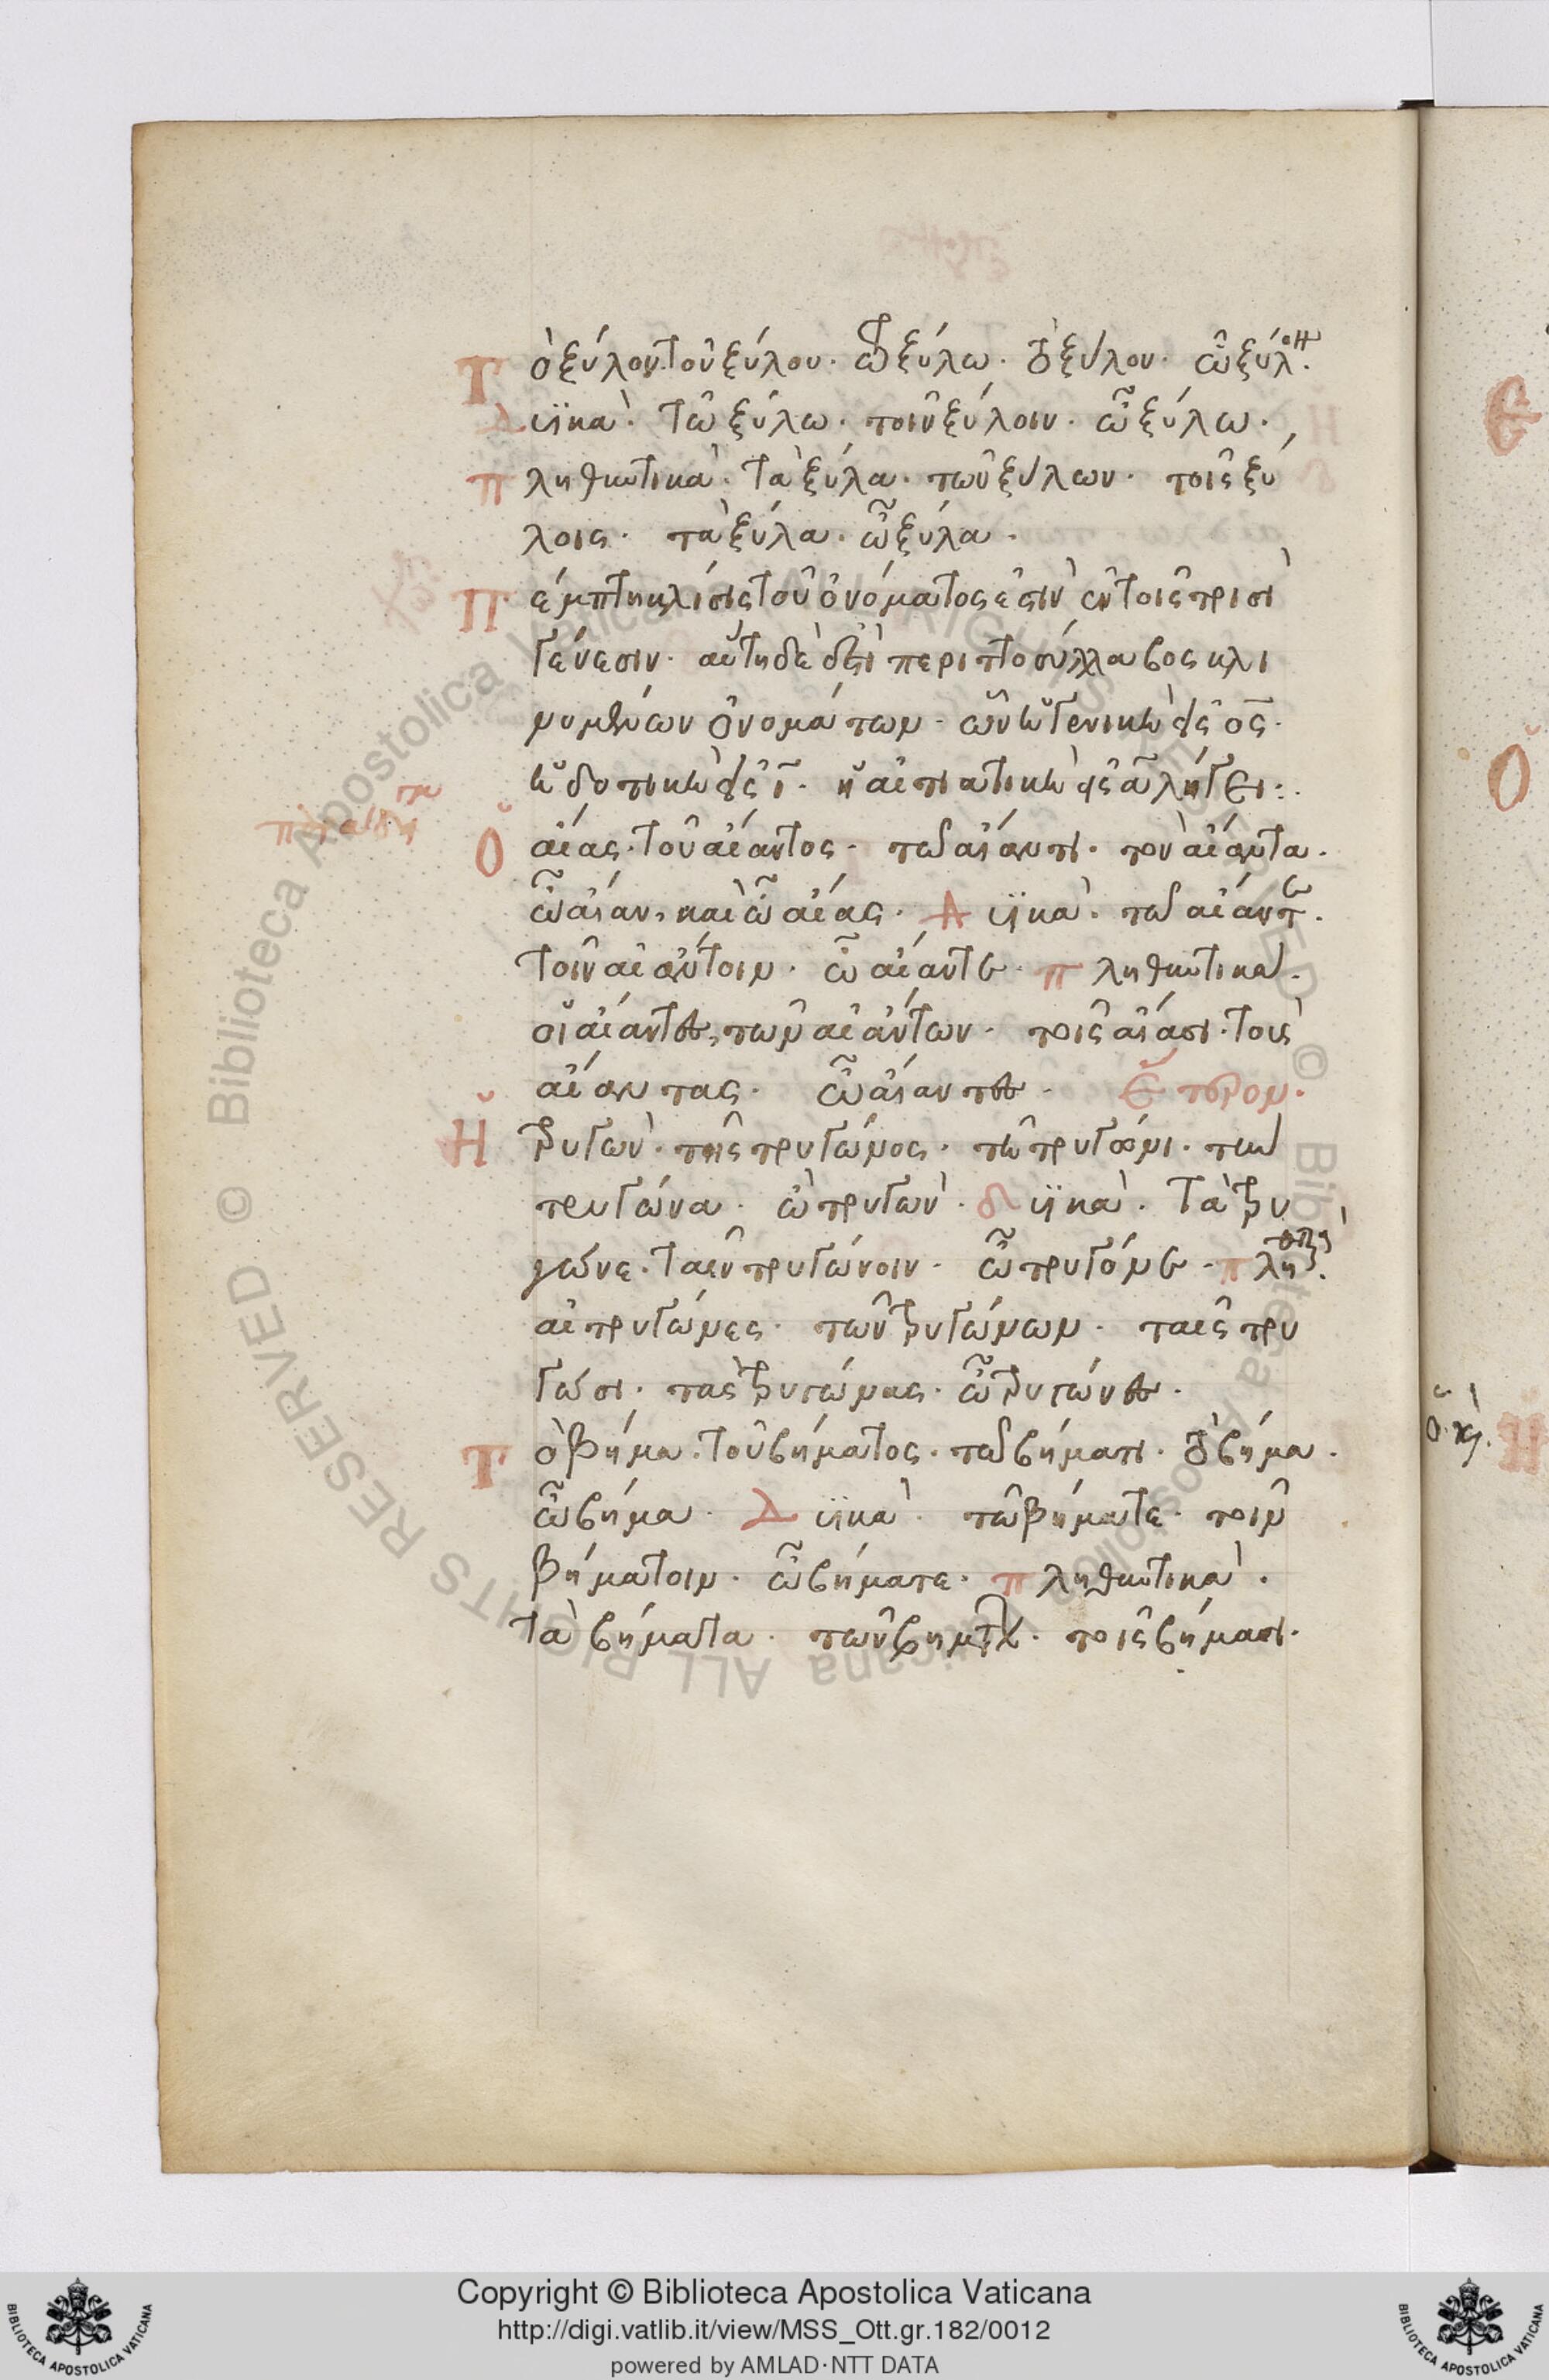 Τὸ ξύλον. τοῦ ξύλου. τῶ ξύλω. τὸ ξύλον. ὦ ξύλον.
Δυϊκὰ. τὼ ξύλω. τοῖν ξύλοιν. ὦ ξύλω.
πληθυντικὰ. τὰ ξύλα. τῶν ξύλων. τοῖς ξύ
λοις. τὰ ξύλα. ὦ ξύλα.
Πέμπτη κλίσις τοῦ ὀνόματος ἐστὶν ἐν τοῖς τρισὶ
γένεσιν. αὕτη δὲ ἐστὶ περιττοσύλλαβος κλι
νομένων ὀνομάτων. ὧν ἡ γενικὴ εἰς ος.
ἡ δοτικὴ εἰς ι. ἡ αἰτιατικὴ εἰς α λήγει:
Ὁ αἴας. τοῦ αἴαντος. τῶ αἴαντι. τὸν αἴαντα.
ὦ αἶαν, καὶ ὦ αἴας. Δυϊκὰ. τὼ αἴαντε.
τοῖν αἰάντοιν. ὦ αἴαντε. πληθυντικὰ.
οἱ αἴαντες, τῶν αἰάντων. τοῖς αἴασι. τοὺς
αἴαντας. ὦ αἴαντες. ἕτερον.
Ἡ τρυγὼν. τῆς τρυγώνος. τῆ τρυγώνι. τὴν
τρυγώνα. ὦ τρυγὼν. δυϊκὰ. τὰ τρυ
γώνε. ταῖν τρυγώνοιν. ὦ τρυγόνε. πλη.
αἱ τρυγώνες. τῶν τρυγώνων. ταῖς τρυ
γώσι. τὰς τρυγώνας. ὦ τρυγώνες.
Τὸ βήμα. τοῦ βήματος. τῶ βήματι. τὸ βήμα.
ὦ βήμα. Δυϊκὰ. τὼ βήματε. τοῖν
βημάτοιν. ὦ βήματε. πληθυντικὰ.
τὰ βήματα. τῶν βημάτων. τοῖς βήμασι.
Copyright © Biblioteca Apostolica Vaticana
http://digi.vatlib.it/view/MSS_Ott.gr.182/0012
powered by AMLAD·NTT DATA